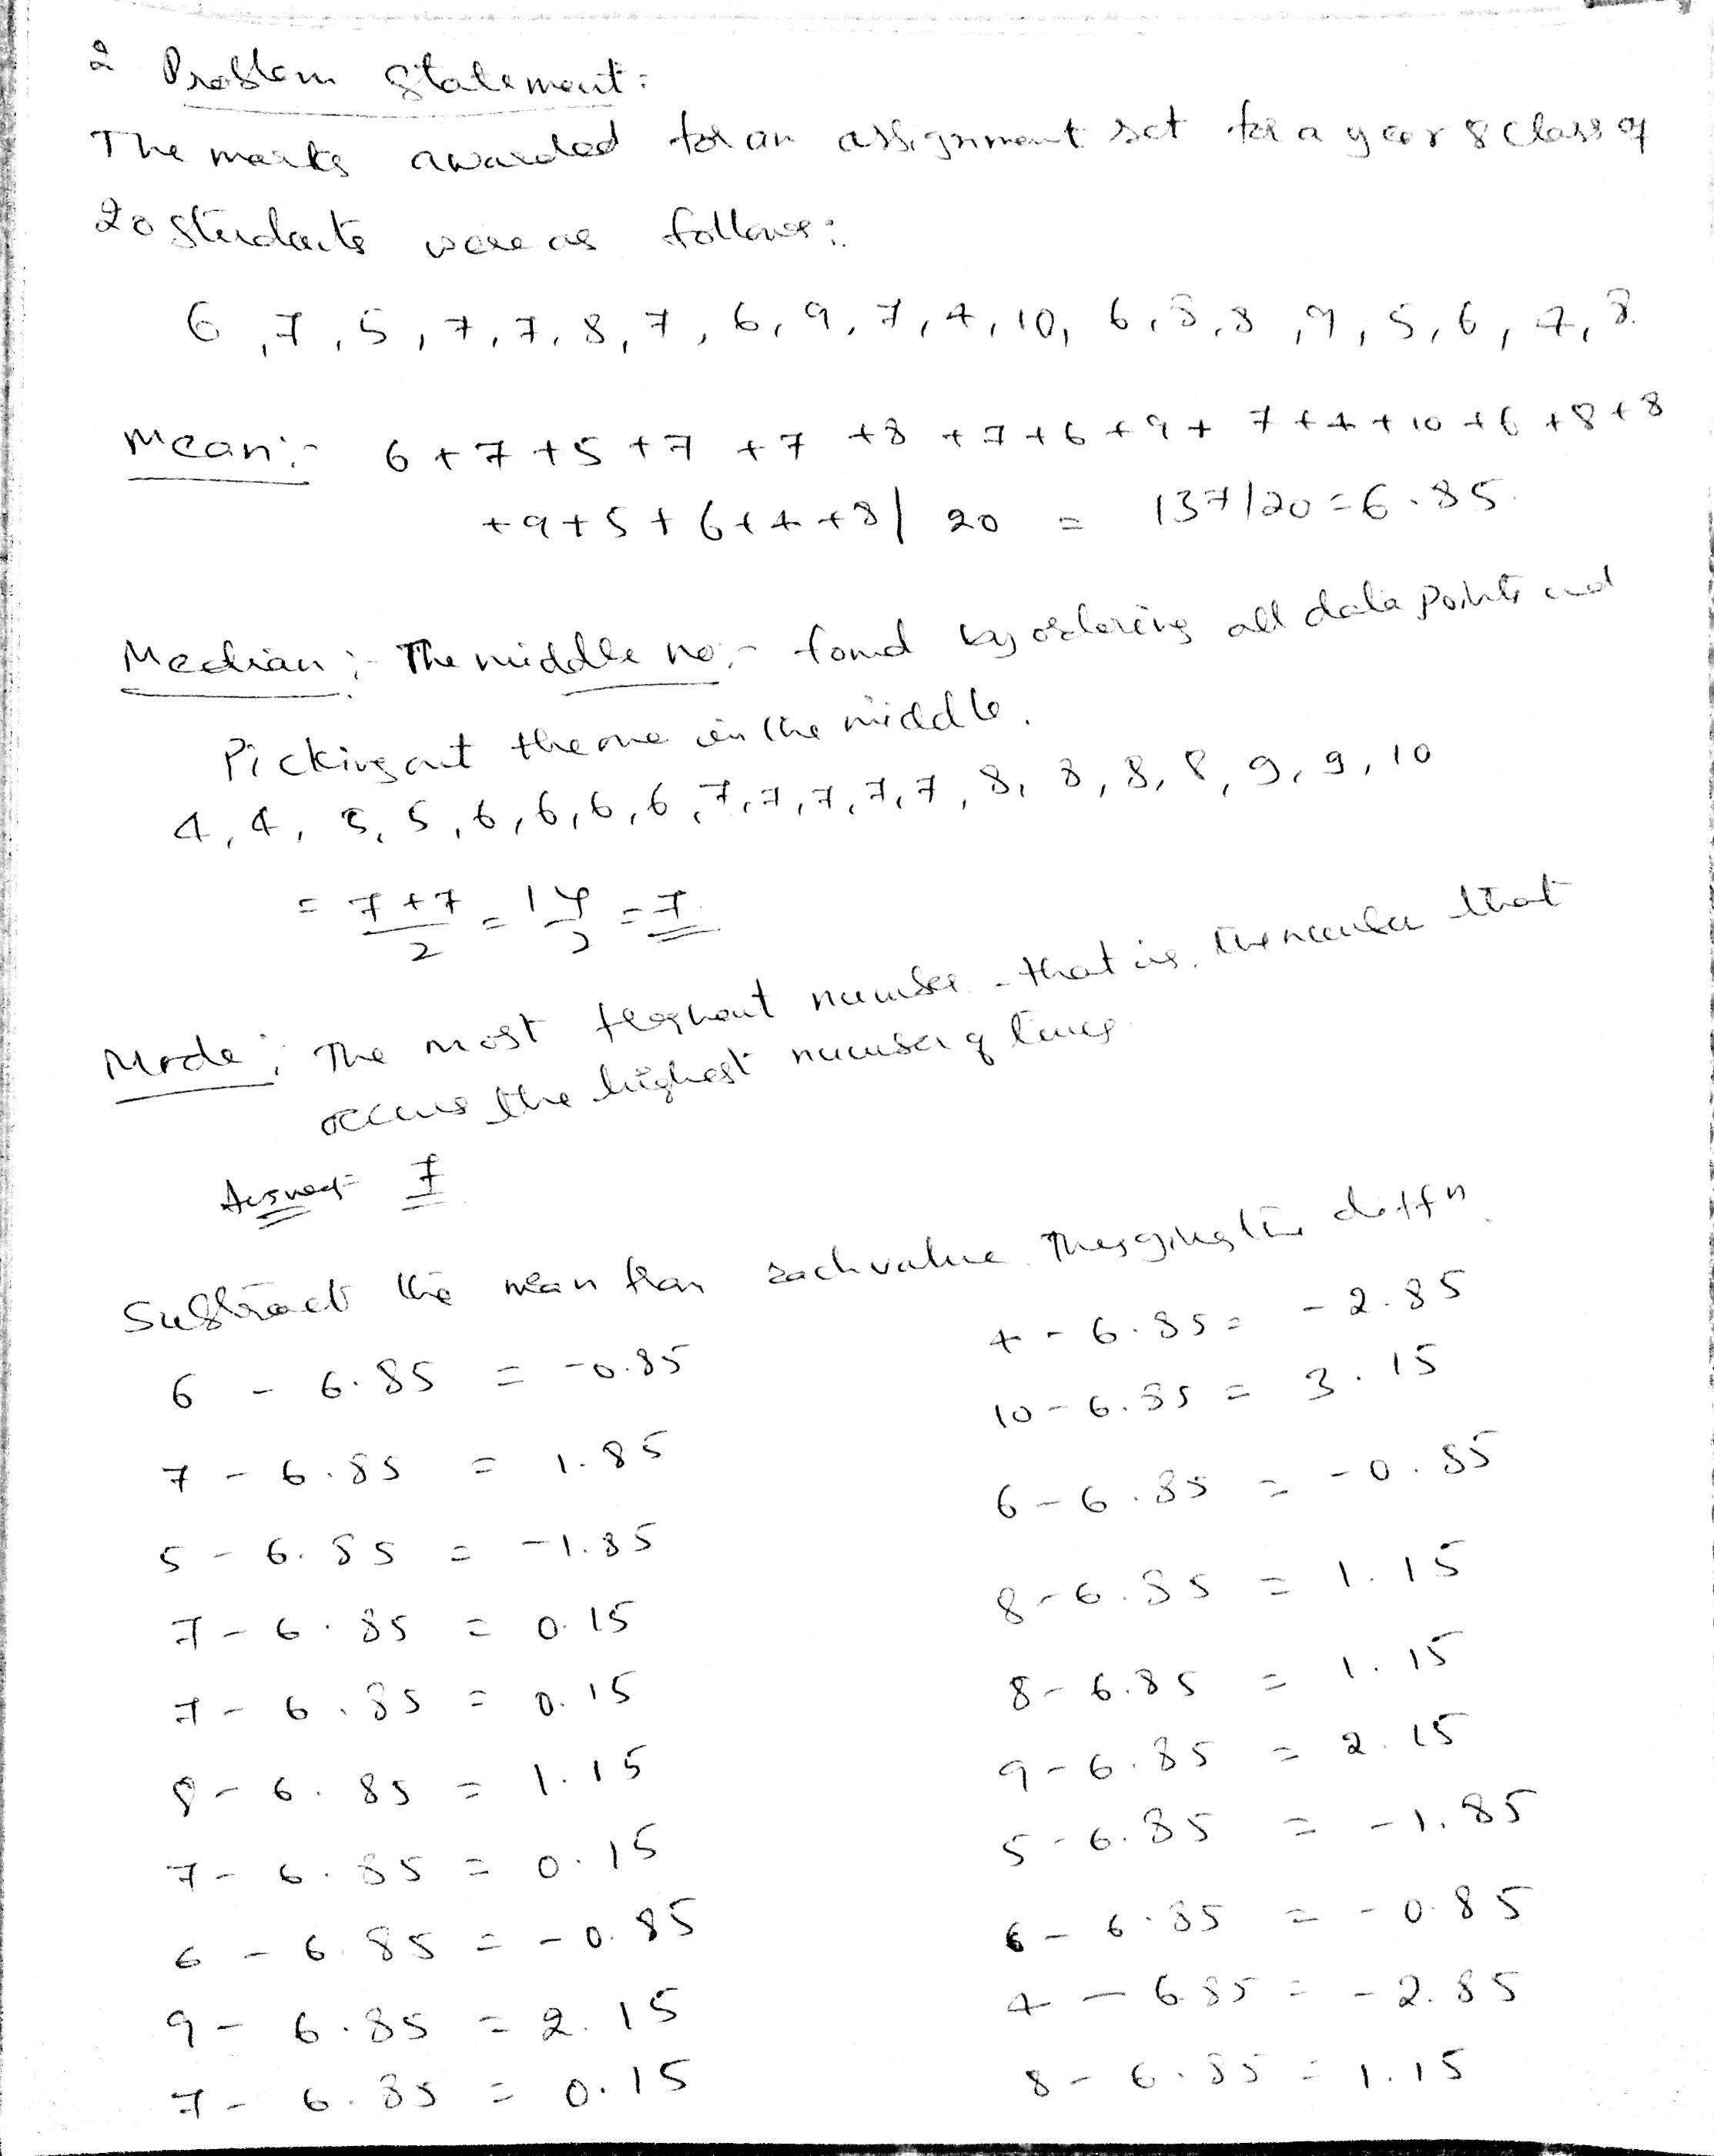 2 Problem Statement:
The marks awarded for an assignment set for a year 8 class of
20 students were as follows:
6, 7, 5, 7, 7, 8, 7, 6, 9, 7, 4, 10, 6, 8, 8, 9, 5, 6, 4, 8.
Mean:- 6+7+5+7+7+8+7+6+9+7+4+10+6+8+8
+9+5+6+4+8/20 = 137/20 = 6.85.
Median:- The middle no:- found by ordering all data points and
Picking out the one in the middle.
4, 4, 5, 5, 6, 6, 6, 6, 7, 7, 7, 7, 7, 8, 8, 8, 8, 9, 9, 10
= 7+7/2 = 14/2 = 7.
Mode: The most frequent number - that is, the number that
occurs the highest number of times
Answer 7
Subtract the mean from each value. This gives the diffn.
6 - 6.85 = -0.85
7 - 6.85 = 1.85
5 - 6.85 = -1.85
7 - 6.85 = 0.15
7 - 6.85 = 0.15
8 - 6.85 = 1.15
7 - 6.85 = 0.15
6 - 6.85 = -0.85
9 - 6.85 = 2.15
7 - 6.85 = 0.15
4 - 6.85 = -2.85
10 - 6.85 = 3.15
6 - 6.85 = -0.85
8 - 6.85 = 1.15
8 - 6.85 = 1.15
9 - 6.85 = 2.15
5 - 6.85 = -1.85
6 - 6.85 = -0.85
4 - 6.85 = -2.85
8 - 6.85 = 1.15